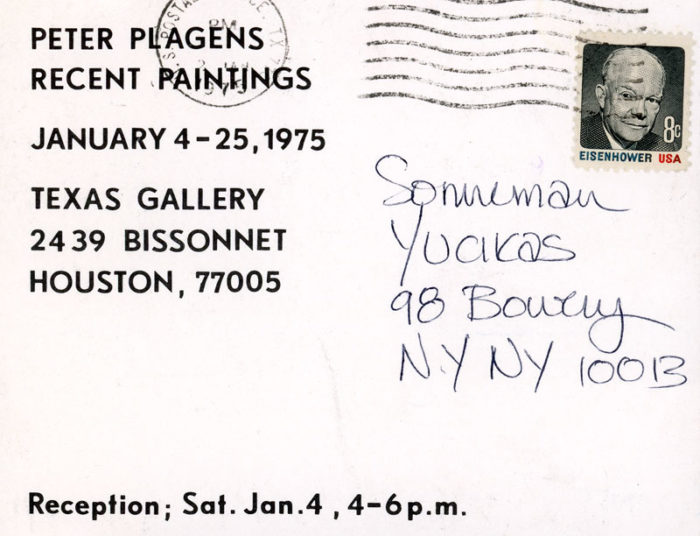 PETER PLAGENS
RECENT PAINTINGS
JANUARY 4-25, 1975
TEXAS GALLERY
2439 BISSONNET
HOUSTON, 77005
PM
8c
EISENHOWER USA
Sonneman
Yuakas
98 Bowery
N.Y NY 10013
Reception; Sat. Jan. 4, 4-6 p.m.